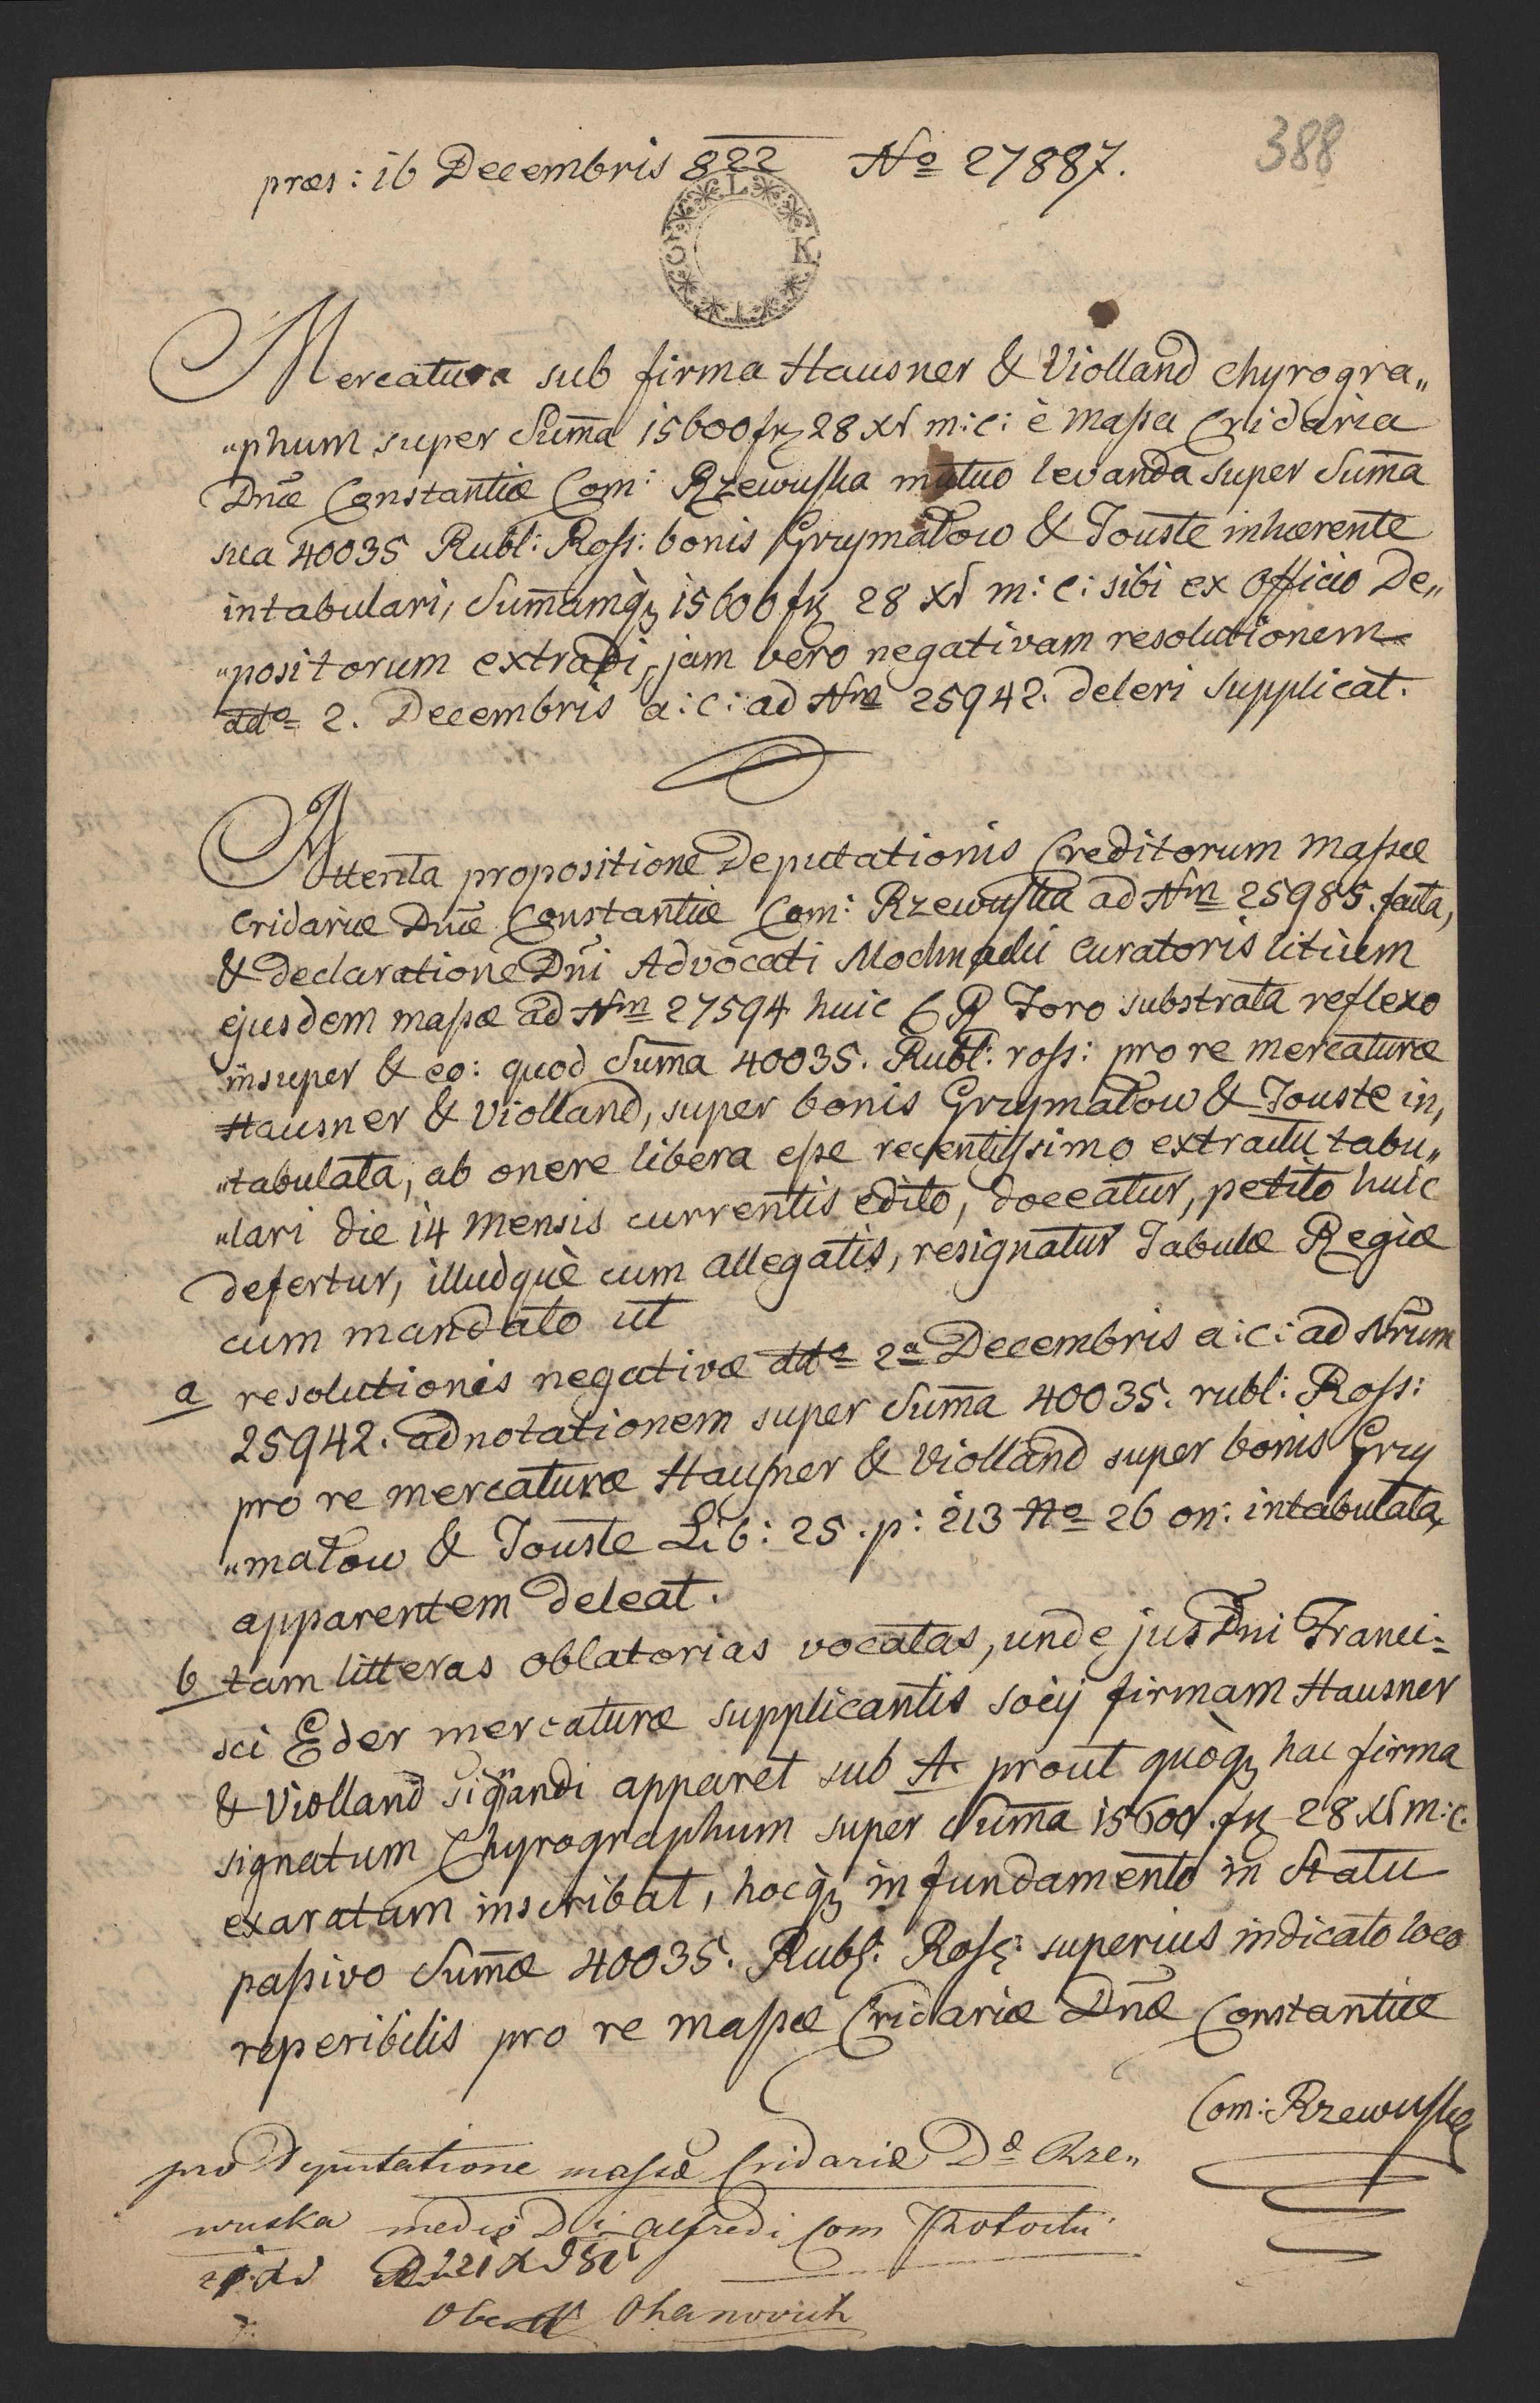 388
præs: 16 Decembris 822 No 27887.
Mercatura sub firma Hausner & Violland chyrogra„
„phum super Sum̄a 15600 fr 28 xr m: c: è massa Cridaria
Dnæ Constantiæ Com: Rzewuska mutuo levanda super Sum̄a
sua 40035 Rubl: Ross: bonis Grzymałow & Touste inhærente
intabulari, Sum̄amq̨ 15600 fr 28 xr m: c: sibi ex Officio De„
„positorum extradi, jam vero negativam resolutionem
ddto 2. Decembris a: c: ad Nrm 25942. deleri supplicat.
Attenta propositione Deputationis Creditorum massæ
Cridariæ Dnæ Constantiæ Com: Rzewuska ad Nrm 25985. facta,
& declaratione Dni Advocati Mochnacki curatoris litium
ejusdem massæ ad Nrm 27594 huic C R Foro substrata reflexo
insuper & eo: quod Sum̄a 40035. Rubl: ross: pro re mercaturæ
Hausner & Violland, super bonis Grzymałow & Touste in„
„tabulata, ab onere libera esse recentissimo extractu tabu„
„lari die 14 mensis currentis edito, doceatur, petito huic
defertur, illudquè cum allegatis, resignatur Tabulæ Regiæ
cum mandato ut
a resolutionis negativæ ddto 2a Decembris a: c: ad Nrum
25942. adnotationem super Sum̄a 40035. rubl: Ross:
pro re mercaturæ Hausner & Violland super bonis Grzy
„małow & Touste Lib: 25. p: 213 No 26 on: intabulata,
apparentem deleat.
b tam litteras oblatorias vocatas, unde jus Dni Franci=
sci Eder mercaturæ supplicantis socij firmam Hausner
& Violland signandi apparet sub A. prout quòq̨ hac firma
signatum Chyrographum super Sum̄a 15600. fr 28 xr m: c.
exaratum inscribat, hocq̨ in fundamento in Statu
passivo Sum̄æ 40035. Rubl: Ross: superius indicato loco
reperibilis pro re massæ Cridariæ Dnæ Constantiæ
Com: Rzewuska
pro Deputatione massæ Cridariæ Dæ Rze„
wuska medio Di Alfredi Com Potocki
Ohanovich